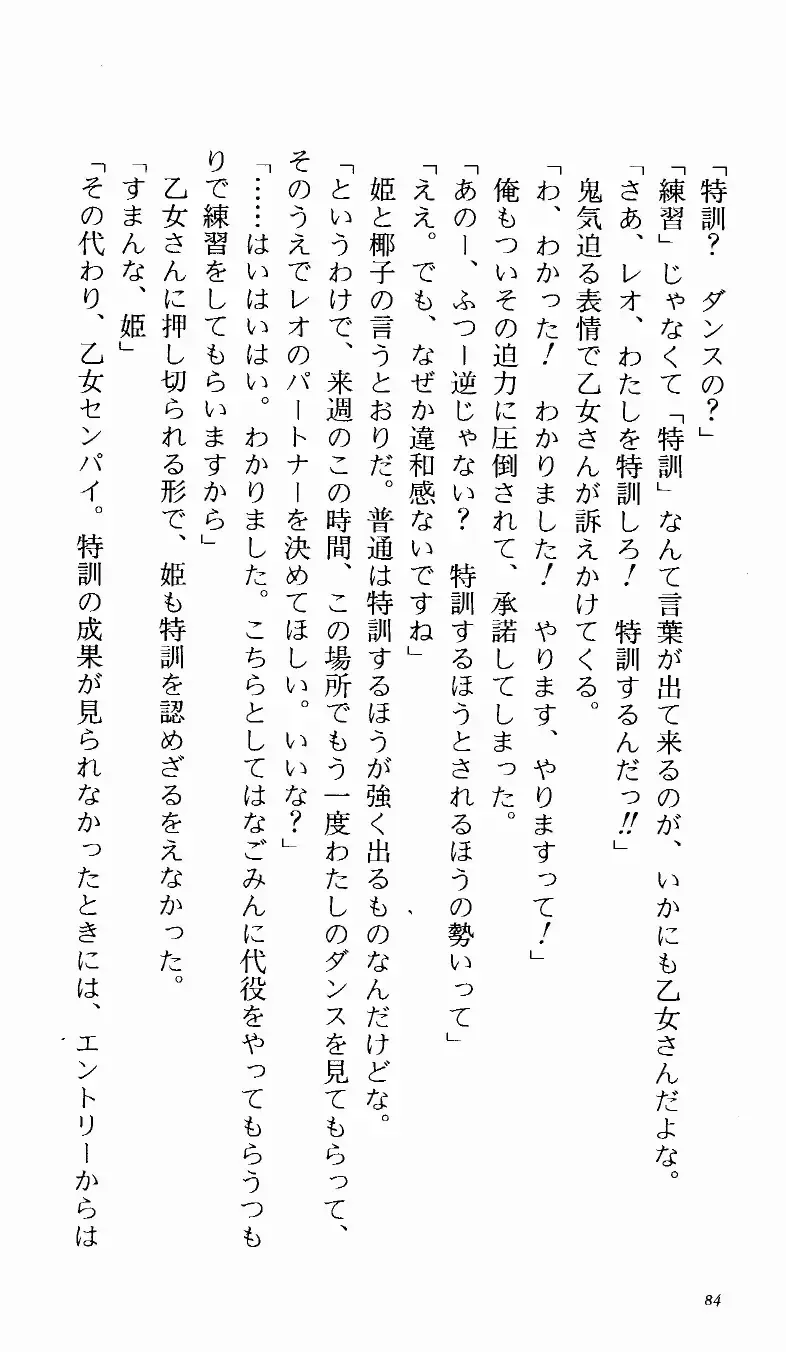 「特訓？　ダンスの？」
「練習」じゃなくて「特訓」なんて言葉が出て来るのが、いかにも乙女さんだよな。
「さあ、レオ、わたしを特訓しろ！　特訓するんだっ!!」
　鬼気迫る表情で乙女さんが訴えかけてくる。
「わ、わかった！　わかりました！　やります、やりますって！」
　俺もついその迫力に圧倒されて、承諾してしまった。
「あのー、ふつー逆じゃない？　特訓するほうとされるほうの勢いって」
「ええ。でも、なぜか違和感ないですね」
　姫と椰子の言うとおりだ。普通は特訓するほうが強く出るものなんだけどな。
「というわけで、来週のこの時間、この場所でもう一度わたしのダンスを見てもらって、
そのうえでレオのパートナーを決めてほしい。いいな？」
「……はいはいはい。わかりました。こちらとしてはなごみんに代役をやってもらうつも
りで練習をしてもらいますから」
　乙女さんに押し切られる形で、姫も特訓を認めざるをえなかった。
「すまんな、姫」
「その代わり、乙女センパイ。特訓の成果が見られなかったときには、エントリーからは
84